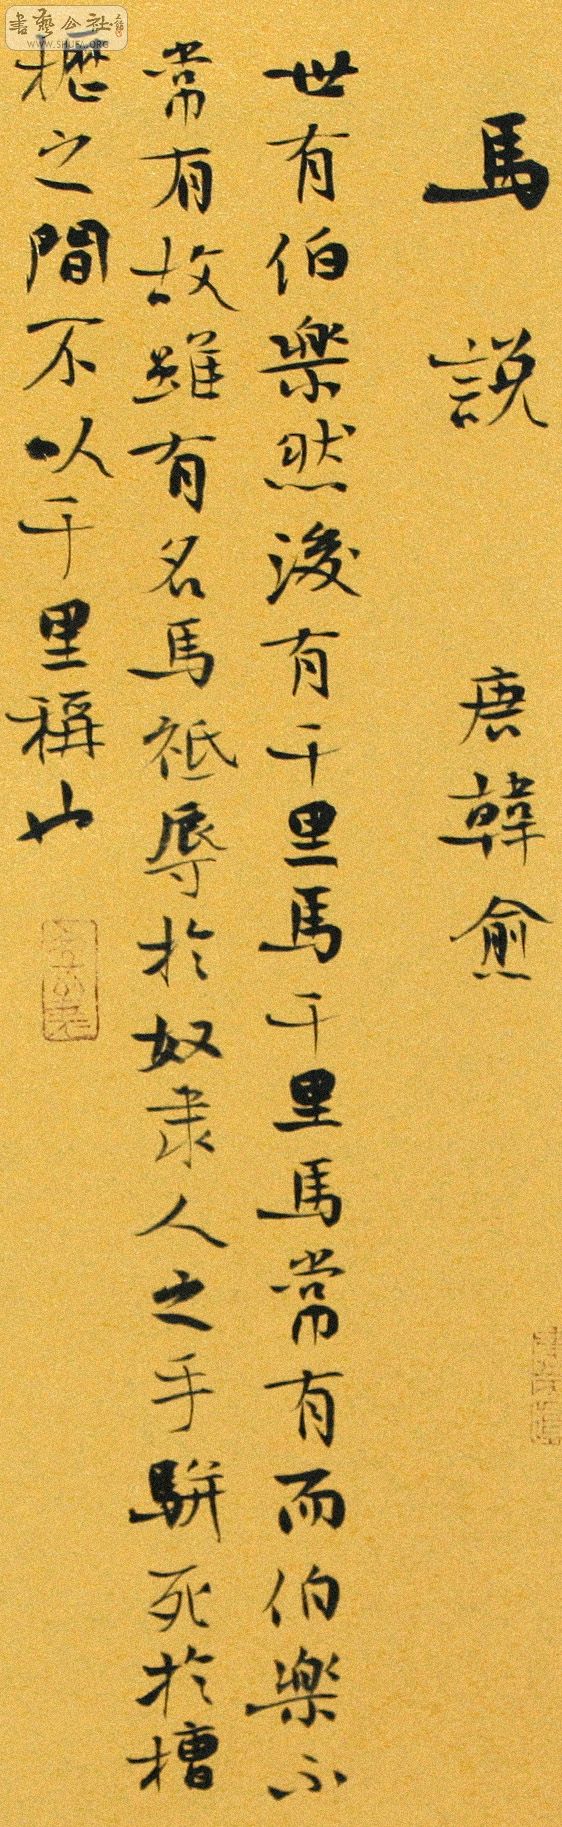 馬說 唐韓愈
世有伯樂然後有千里馬千里馬常有而伯樂不
常有故雖有名馬祗辱於奴隸人之手駢死於槽
櫪之間不以千里稱也
書藝公社
WWW.SHUFA.ORG